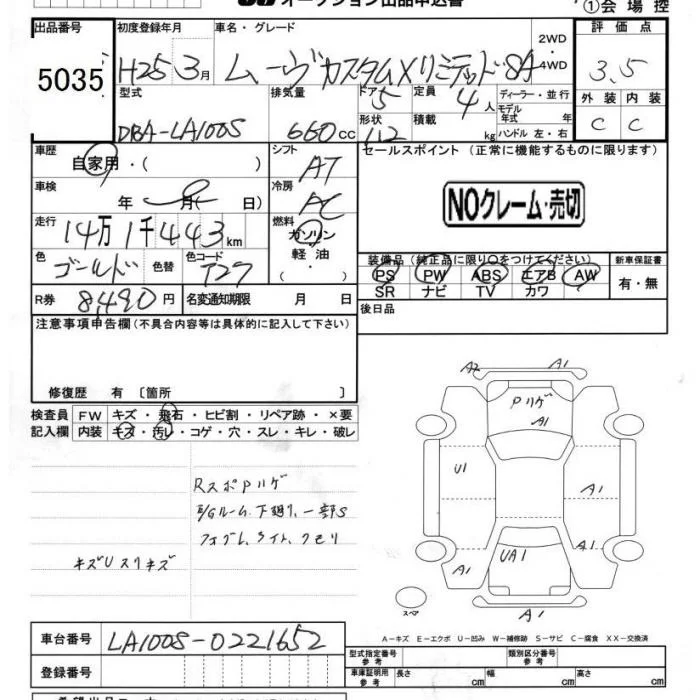 オークション出品申込書
①会場控
出品番号
5035
初度登録年月
車名・グレード
評価点
H25 3月
ムーヴカスタムXリミテッドSA
2WD・4WD
3.5
型式
排気量
ドア
定員
ディーラー・並行
外装 内装
5
4人
モデル年式 年
DBA-LA100S
660cc
形状
積載
kg
ハンドル 左・右
C C
112
車歴
自家用・( )
シフト
AT
セールスポイント (正常に機能するものに限ります)
車検
年 月( 日)
冷房
AC
NOクレーム・売切
走行
14万1千443km
燃料
ガソリン
軽油
・( )
色
ゴールド
色替
色コード
T27
装備品(純正品に限り○をつけてください)
新車保証書
PS PW ABS エアB AW
有・無
SR ナビ TV カワ
R券
8,490円
名変通知期限 月 日
後日品
注意事項申告欄(不具合内容等は具体的に記入して下さい)
修復歴 有 〔箇所 〕
検査員
記入欄
FW キズ・飛石・ヒビ割・リペア跡・×要
内装 キズ・汚レ・コゲ・穴・スレ・キレ・破レ
A2
A1
Pハゲ
A1
U1
A1
UA1
A1
A1
A1
スペア
RスポPハゲ
E/Gルーム、下廻り、一部S
キズUスリキズ
A-キズ E-エクボ U-凹み W-補修跡 S-サビ C-腐食 XX-交換済
車台番号
LA100S-0221652
型式指定番号
参考
類別区分番号
参考
登録番号
車庫証明用
参考
長さ cm
幅 cm
高さ cm